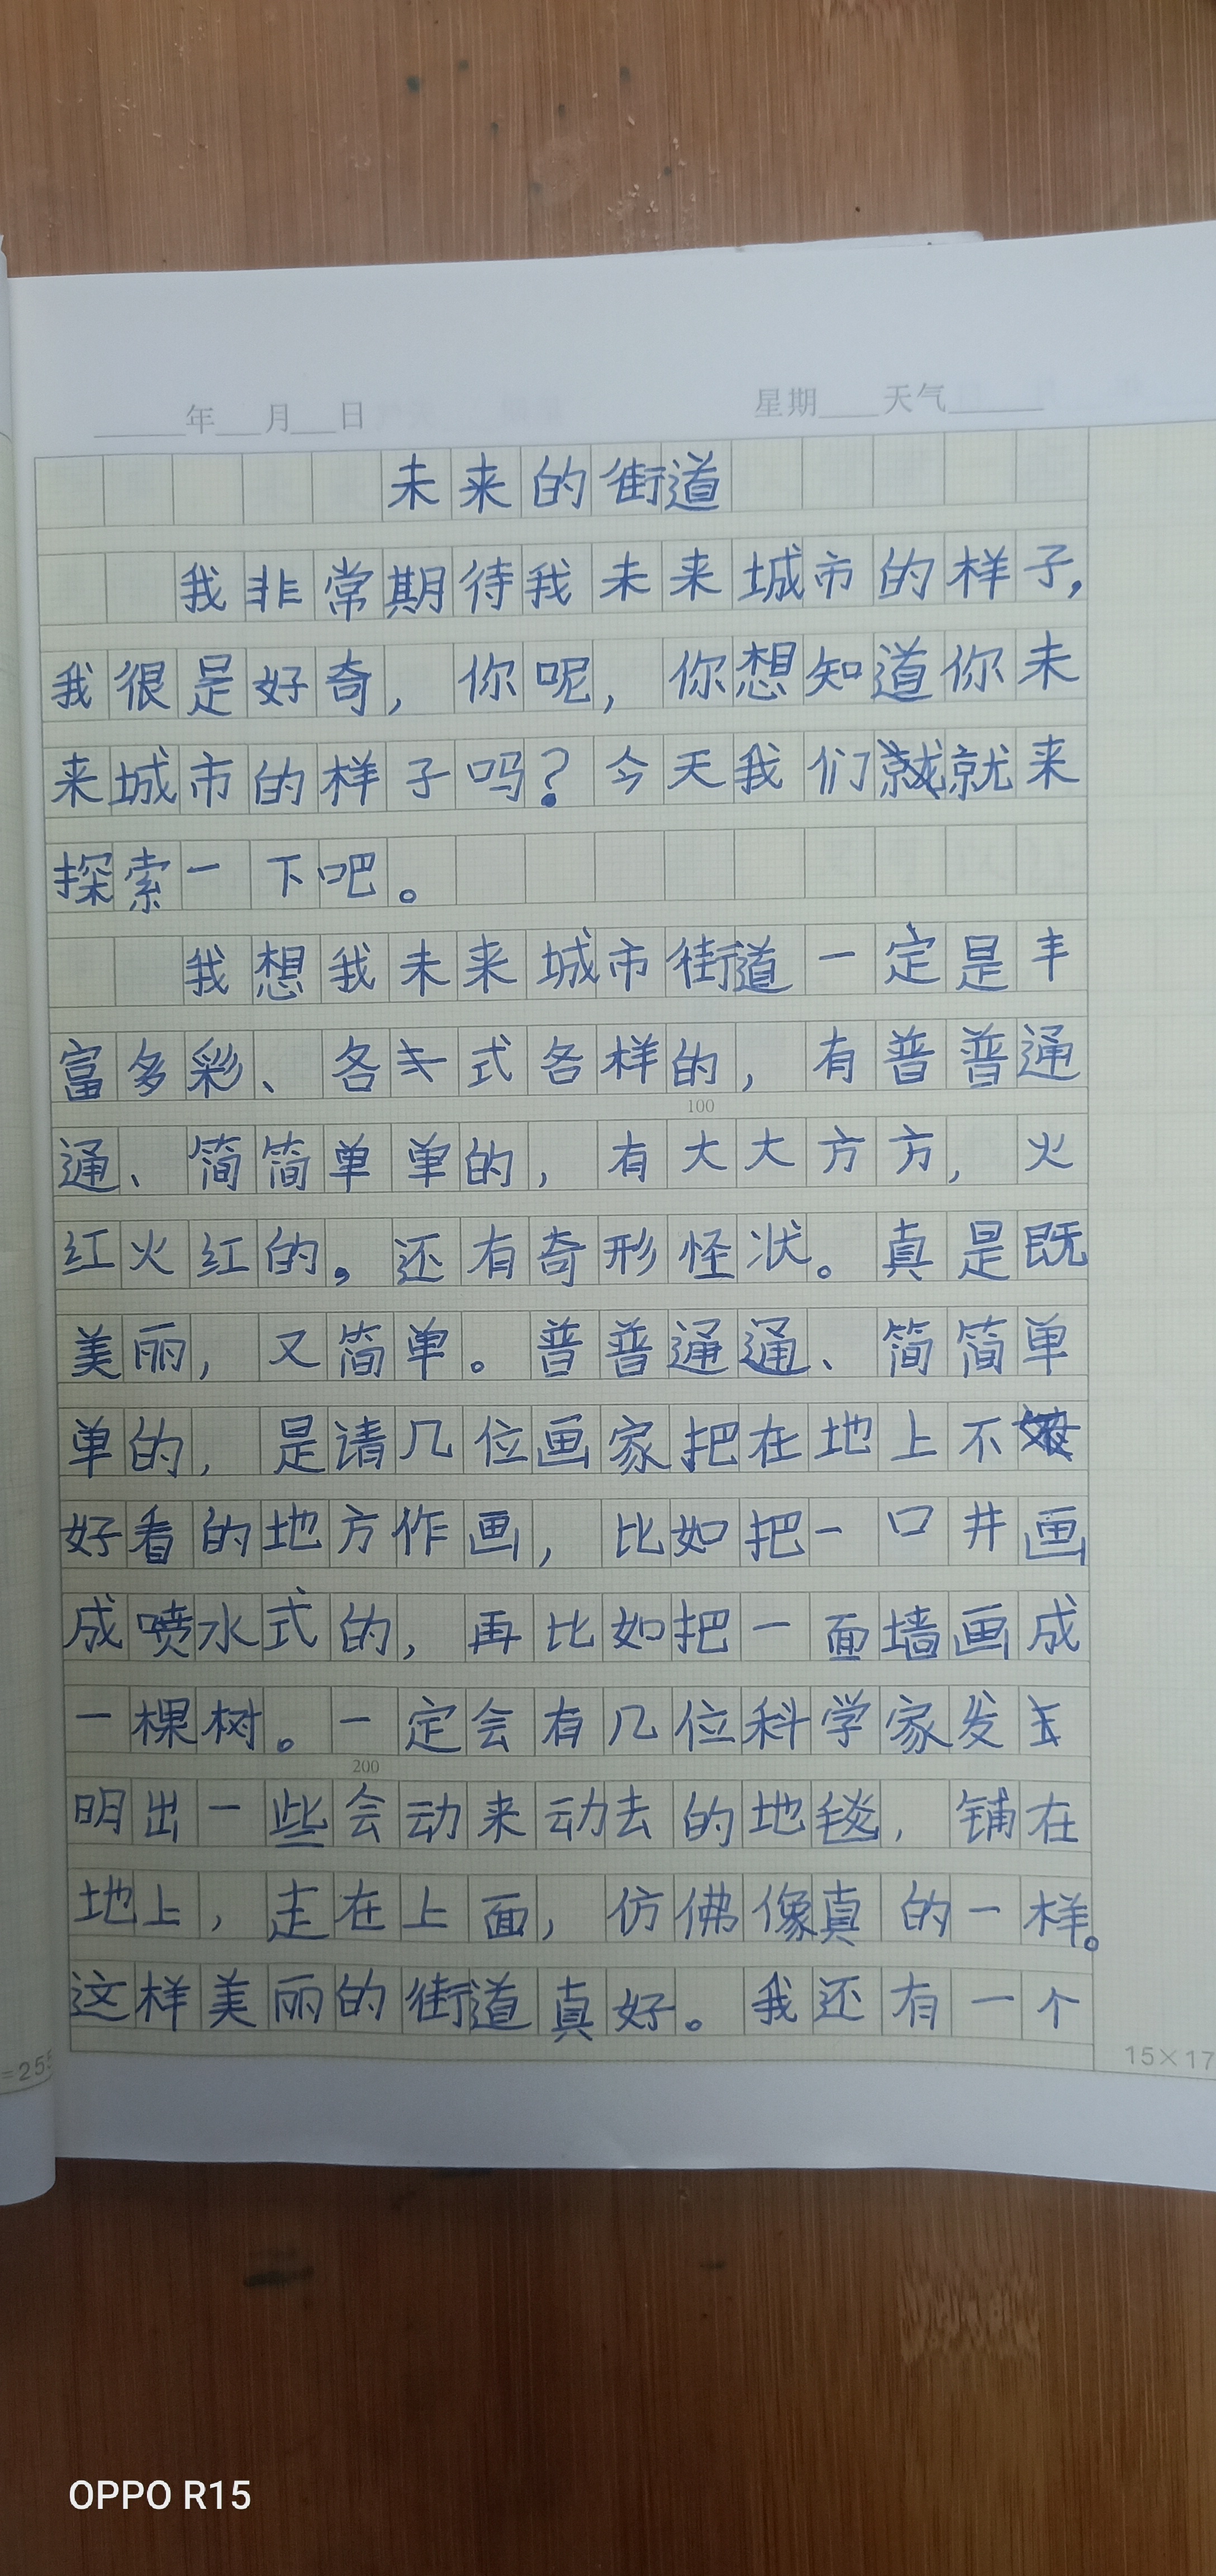 年 月 日 星期 天气
未来的街道
我非常期待我未来城市的样子,
我很是好奇,你呢,你想知道你未
来城市的样子吗?今天我们就来
探索一下吧。
我想我未来城市街道一定是丰
富多彩、各式各样的,有普普通
100
通、简简单单的,有大大方方,火
红火红的。还有奇形怪状。真是既
美丽,又简单。普普通通、简简单
单的,是请几位画家把在地上不
好看的地方作画,比如把一口井画
成喷水式的,再比如把一面墙画成
一棵树。一定会有几位科学家发
200
明出一些会动来动去的地毯,铺在
地上,走在上面,仿佛像真的一样。
这样美丽的街道真好。我还有一个
15×17
=25
OPPO R15